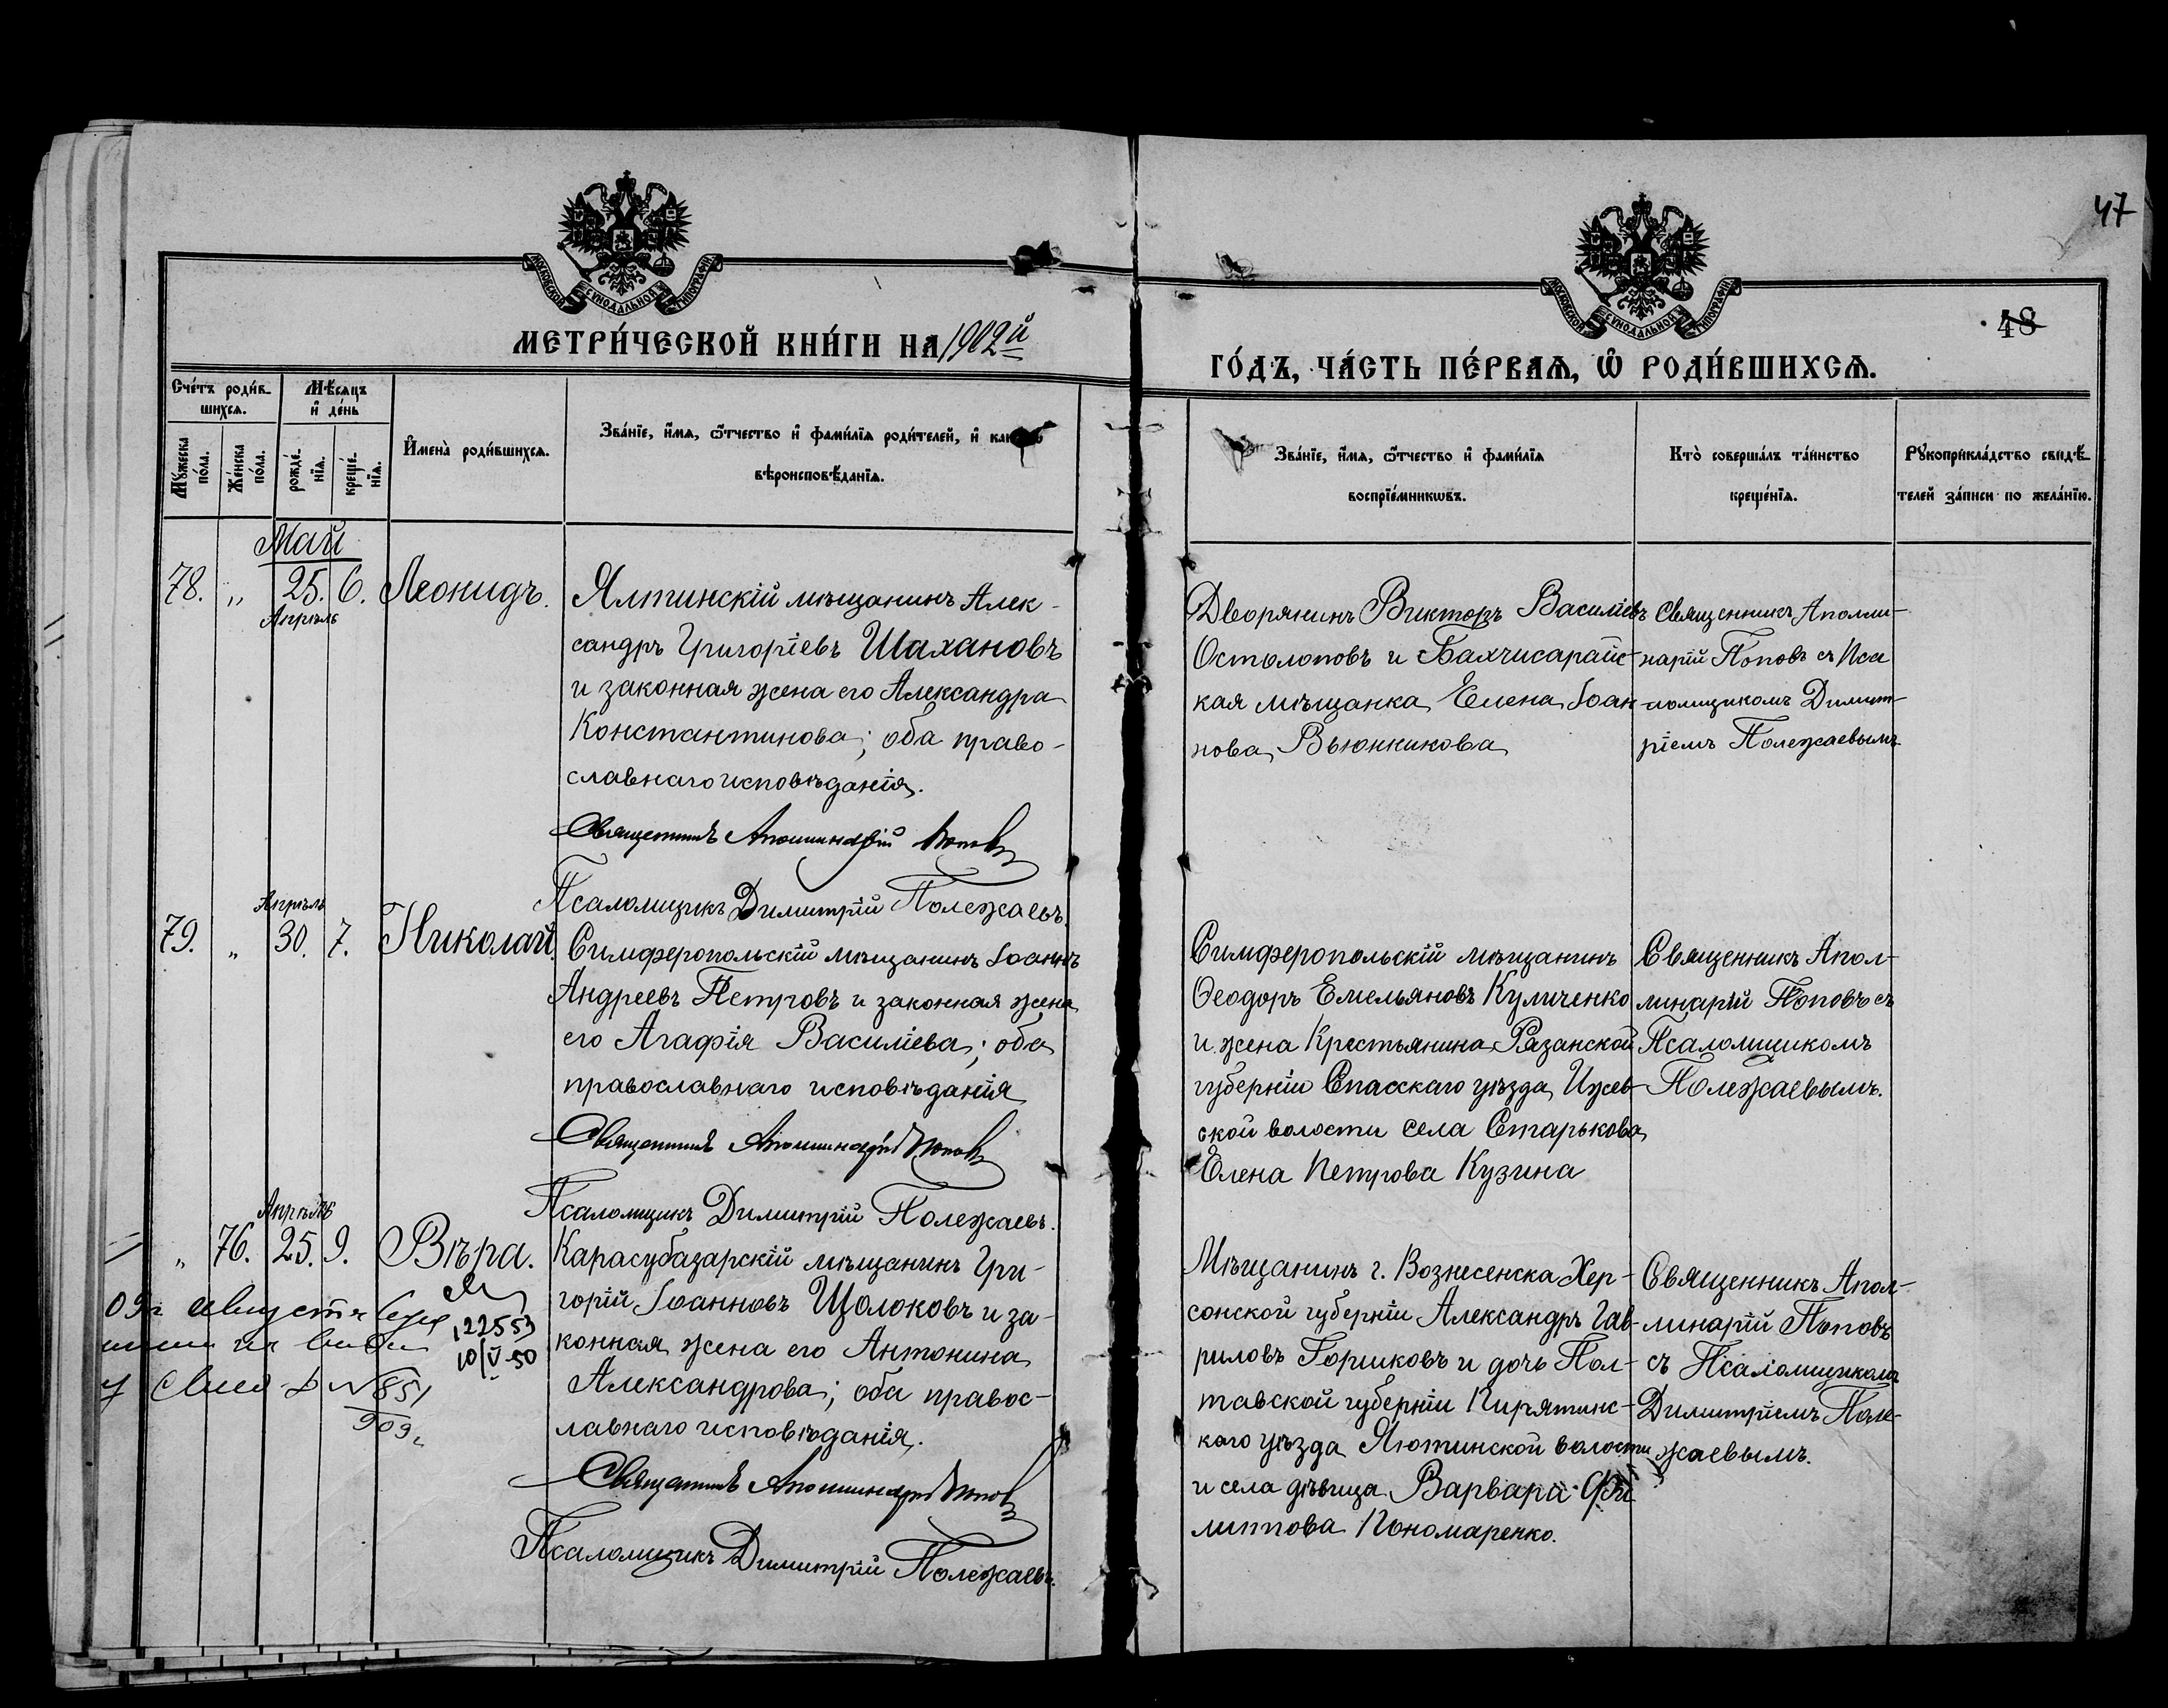 47
МОСКОВСКОЙ СѴНОДАЛЬНОЙ ТИПОГРАФІИ
МОСКОВСКОЙ СѴНОДАЛЬНОЙ ТИПОГРАФІИ
48
МЕТРИ́ЧЕСКОЙ КНИ́ГИ НА 1902й
ГО́ДЪ, ЧА́СТЬ ПЕ́РВАЯ, Ѿ РОДИ́ВШИХСЯ.
Сче́тъ роди́в-
шихся.
Мѣ́сяцъ
и҆ де́нь
Мꙋ́жеска
по́ла.
Же́нска
по́ла.
рожде́-
нїя.
креще́-
нїя.
И҆мена̀ роди́вшихся.
Зва́нїе, и҆́мя, ѻ҆́тчество и҆ фами́лїя роди́телей, и҆
вѣроисповѣ́данїя.
Зва́нїе, и҆́мя, ѻ҆́тчество и҆ фами́лїя
воспрїе́мникѡвъ.
Кто̀ соверша́лъ та́инство
креще́нїя.
Рꙋкоприкла́дство свидѣ́-
телей за́писи по жела́нїю.
Май
78. „ 25. 6. Леонидъ.
Апрѣль
Ялтинскій мѣщанинъ Алек-
сандръ Григоріевъ Шахановъ
и законная жена его Александра
Константинова; оба право-
славнаго исповѣданія.
Священникъ Аполлинарій Поповъ
Псаломщикъ Димитрій Полежаевъ.
Дворянинъ Викторъ Василіевъ
Остолоповъ и Бахчисарайс-
кая мѣщанка Елена Іоан-
нова Вьюнникова
Священникъ Аполли-
нарій Поповъ съ Пса
ломщикомъ Димит-
ріемъ Полежаевымъ
Апрѣль
79. „ 30. 7. Николай.
Симферопольскій мѣщанинъ Іоаннъ
Андреевъ Петровъ и законная жена
его Агафія Василіева; оба
православнаго исповѣданія
Священникъ Аполлинарій Поповъ
Псаломщикъ Димитрій Полежаевъ.
Симферопольскій мѣщанинъ
Ѳеодоръ Емельяновъ Куличенко
и жена Крестьянина Рязанской
губерніи Спасскаго уѣзда, Ижев-
ской волости села Старькова
Елена Петрова Кузина
Священникъ Апол-
линарій Поповъ съ
Псаломщикомъ
Полежаевымъ.
Апрѣль
„ 76. 25. 9. Вѣра.
Карасубазарскій мѣщанинъ Гри-
горій Іоанновъ Щолоковъ и за-
конная жена его Антонина
Александрова; оба правос-
лавнаго исповѣданія.
Священникъ Аполлинарій Поповъ
Псаломщикъ Димитрій Полежаевъ.
09г августа
122553
10/V-50
№ 851
909г
Мѣщанинъ г. Вознесенска Хер-
сонской губерніи Александръ Гав-
риловъ Горшковъ и дочь Пол-
тавской губерніи Пирятинс-
каго уѣзда Яготинской волости
и села дѣвица Варвара Фи
липпова Пономаренко.
Священникъ Апол-
линарій Поповъ
съ Псаломщикомъ
Димитріемъ Поле-
жаевымъ.